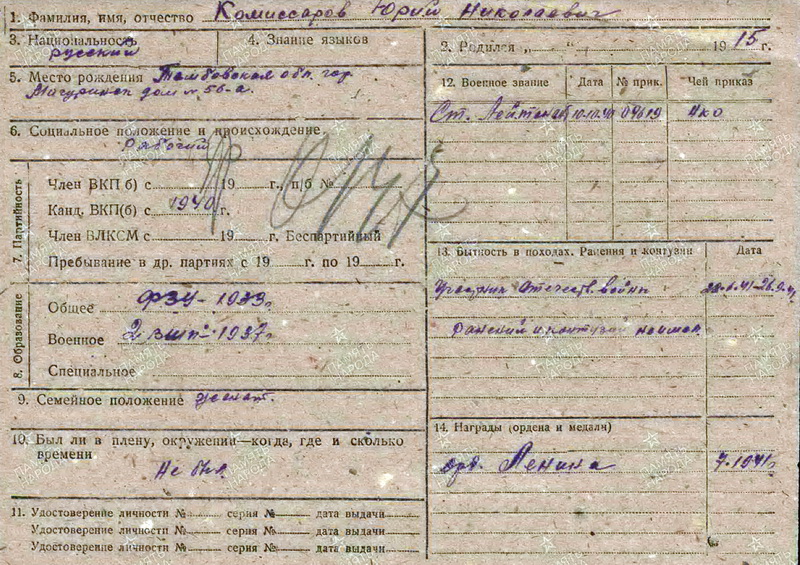 1. Фамилия, имя, отчество Комиссаров Юрий Николаевич
3. Национальность русский
4. Знание языков
2. Родился „ “ 1915 г.
5. Место рождения Тамбовская обл. гор.
Мичуринск дом № 56-а.
6. Социальное положение и происхождение
Рабочий
7. Партийность
Член ВКП б) с 19 г., п/б №
Канд. ВКП(б) с 1940 г.
Член ВЛКСМ с 19 г. Беспартийный
Пребывание в др. партиях с 19 г. по 19 г.
8. Образование
Общее ФЗУ-1933г
Военное 2 1937г
Специальное
9. Семейное положение женат.
10. Был ли в плену, окружении—когда, где и сколько
времени
Не был
11. Удостоверение личности № серия № дата выдачи
Удостоверение личности № серия № дата выдачи
Удостоверение личности № серия № дата выдачи
12. Военное звание Дата № прик. Чей приказ
Ст. Лейтенант 10.10.40 04619 НКО
13. Бытность в походах. Ранения и контузии Дата
Участник Отечеств. войны
Ранений и контузий
14. Награды (ордена и медали)
орд. Ленина 7.1941г